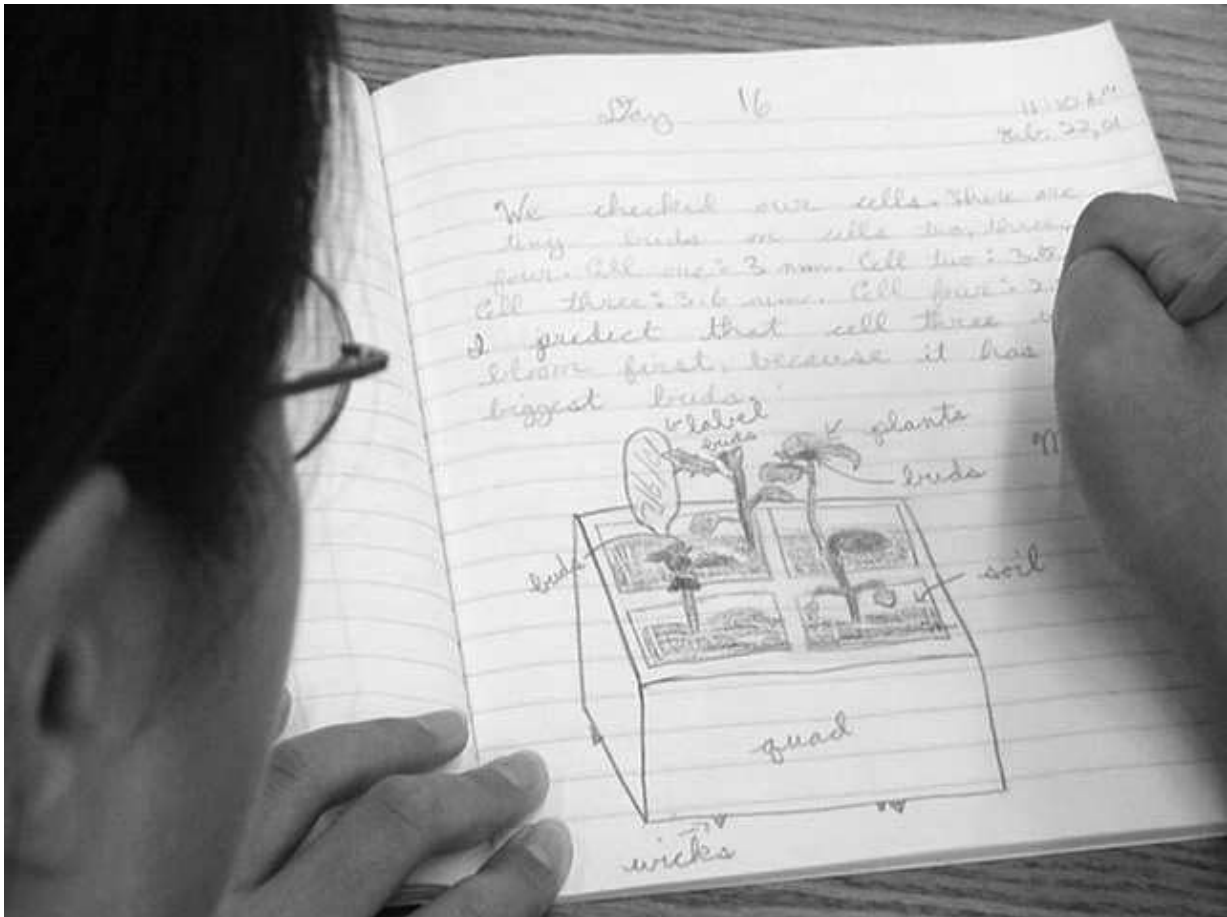 Day 16
11:10 A.M
Feb. 22, 01
We checked our cells. There are
tiny buds on cells two, three,
four. Cell one: 3 mm. Cell two: 3.8
Cell three: 3.6 mm. Cell four: 2.
I predict that cell three
bloom first, because it has
biggest buds.
label
buds
plants
buds
buds
soil
quad
wicks